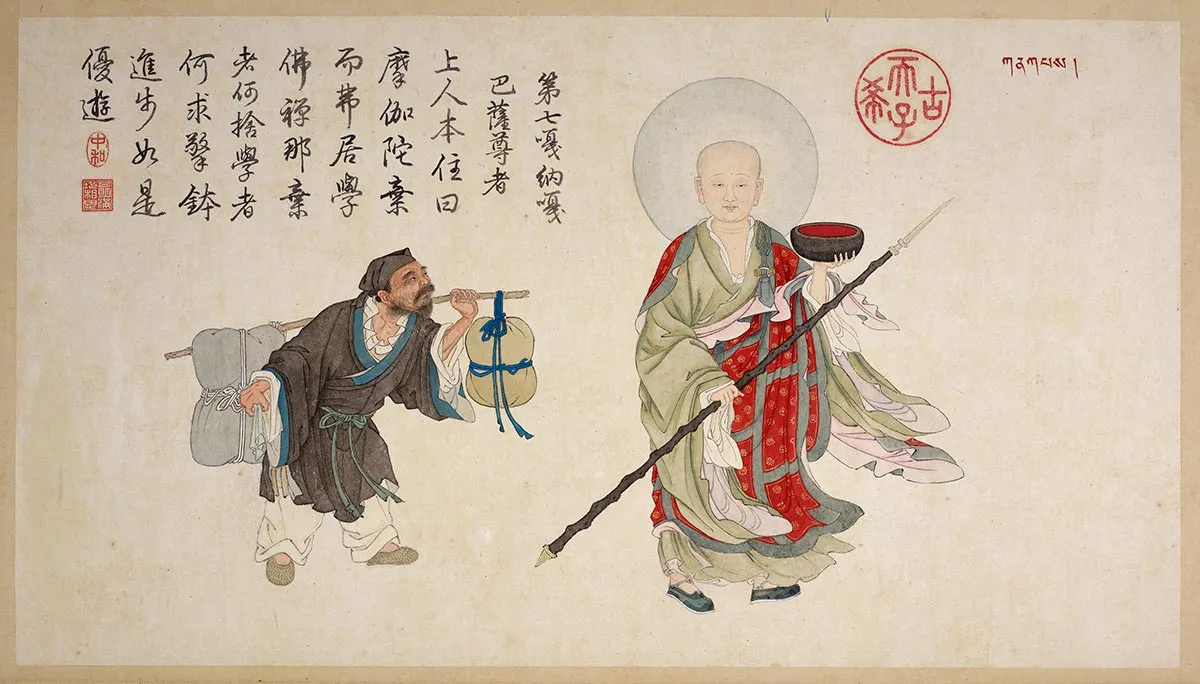 ཀནཀཔས།
古希天子
第七嘎納嘎
巴薩尊者
上人本住曰
摩伽陀棄
而弗居學
佛禪那棄
者何捨學者
何求擎鉢
進步如是
優遊
中和